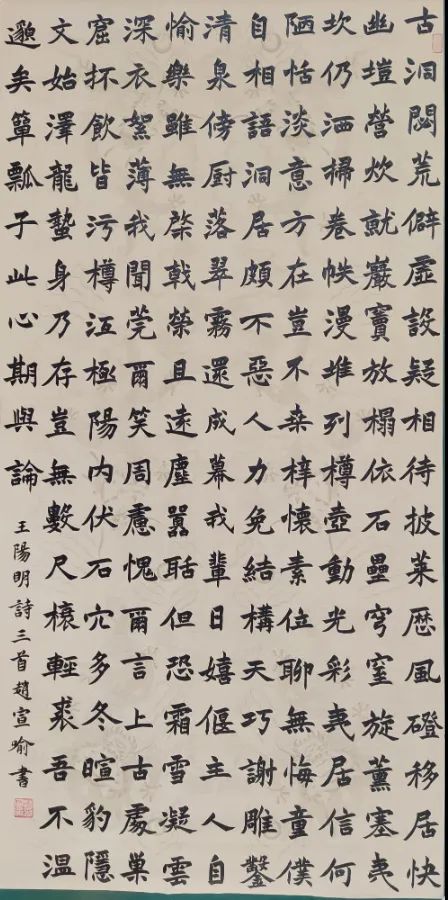 古洞閟荒僻虛設疑相待披萊歷風磴移居快
幽塏營炊就巖竇放榻依石壘穹窒旋薰塞夷
坎仍洒掃卷帙漫堆列樽壺動光彩夷居信何
陋恬淡意方在豈不桑梓懷素位聊無悔童僕
自相語洞居頗不惡人力免結構天巧謝雕鑿
清泉傍厨落翠霧還成幕我輩日嬉偃主人自
愉樂雖無棨戟榮且遠塵囂聒但恐霜雪凝雲
深衣絮薄我聞莞爾笑周慮愧爾言上古處巢
窟抔飲皆污樽沍極陽内伏石穴多冬暄豹隱
文始澤龍蟄身乃存豈無數尺榱輕裘吾不溫
邈矣簞瓢子此心期與論
王陽明詩三首趙宣喻書